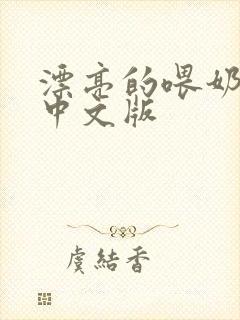 漂亮的喂奶
中文版
虞結香